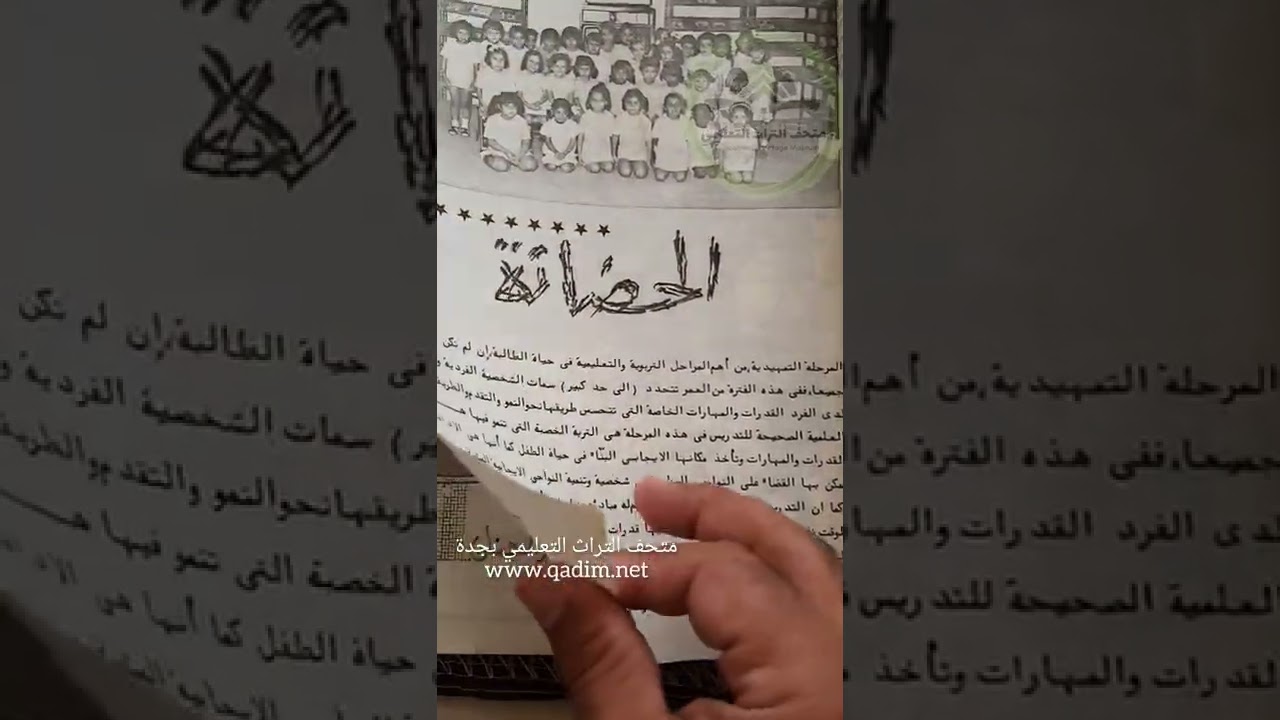 متحف التراث التعليمي
★ ★ ★ ★ ★ ★ ★ ★
الحضانة
المرحلة التمهيدية، من أهم المراحل التربوية والتعليمية فى حياة الطالبة، إن لم تكن
جميعها، ففى هذه الفترة من العمر تتحدد ( الى حد كبير ) سمات الشخصية الفردية و
لدى الفرد القدرات والمهارات الخاصة التى تتحسس طريقها نحو النمو والتقدم والطريقة
العلمية الصحيحة للتدريس فى هذه المرحلة هى التربة الخصبة التى تنمو فيها هـــ
القدرات والمهارات وتأخذ مكانها الايجابى البناء فى حياة الطفل كما أنها هى الاد
يمكن بها القضاء على النواحى شخصية وتنمية النواحى الايجابية
كما ان التدر
الوقت قدرات
متحف التراث التعليمي بجدة
www.qadim.net